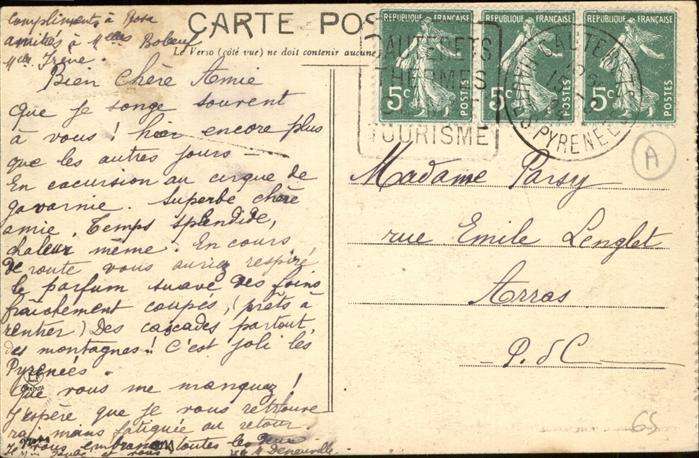 Compliments à Rosa
amitiés à Melles Bobeuf
Melle Frévé.
CARTE POS
Le Verso (côté vue) ne doit contenir aucune
REPUBLIQUE FRANÇAISE
5c
REPUBLIQUE FRANÇAISE
5c
REPUBLIQUE FRANÇAISE
5c
CAUTERETS
THERMES
TOURISME
CAUTERETS
HAUTES PYRENEES
A
Bien Chère Amie
Que je songe souvent
à vous! hier encore plus
que les autres jours —
En excursion au cirque de
gavarnie. Superbe chère
amie. Temps splendide,
chaleur même. En cours
de route vous auriez respiré
le parfum suave des foins
fraîchement coupés, (prêts à
rentrer) Des cascades partout,
des montagnes! C'est joli les
Pyrénées.
Que vous me manquez!
J'espère que je vous retrouve
rai moins fatiguée au retour
vous embrassons toutes les deux
Deneuville
Madame Parsy
rue Emile Lenglet
Arras
P. d C
65